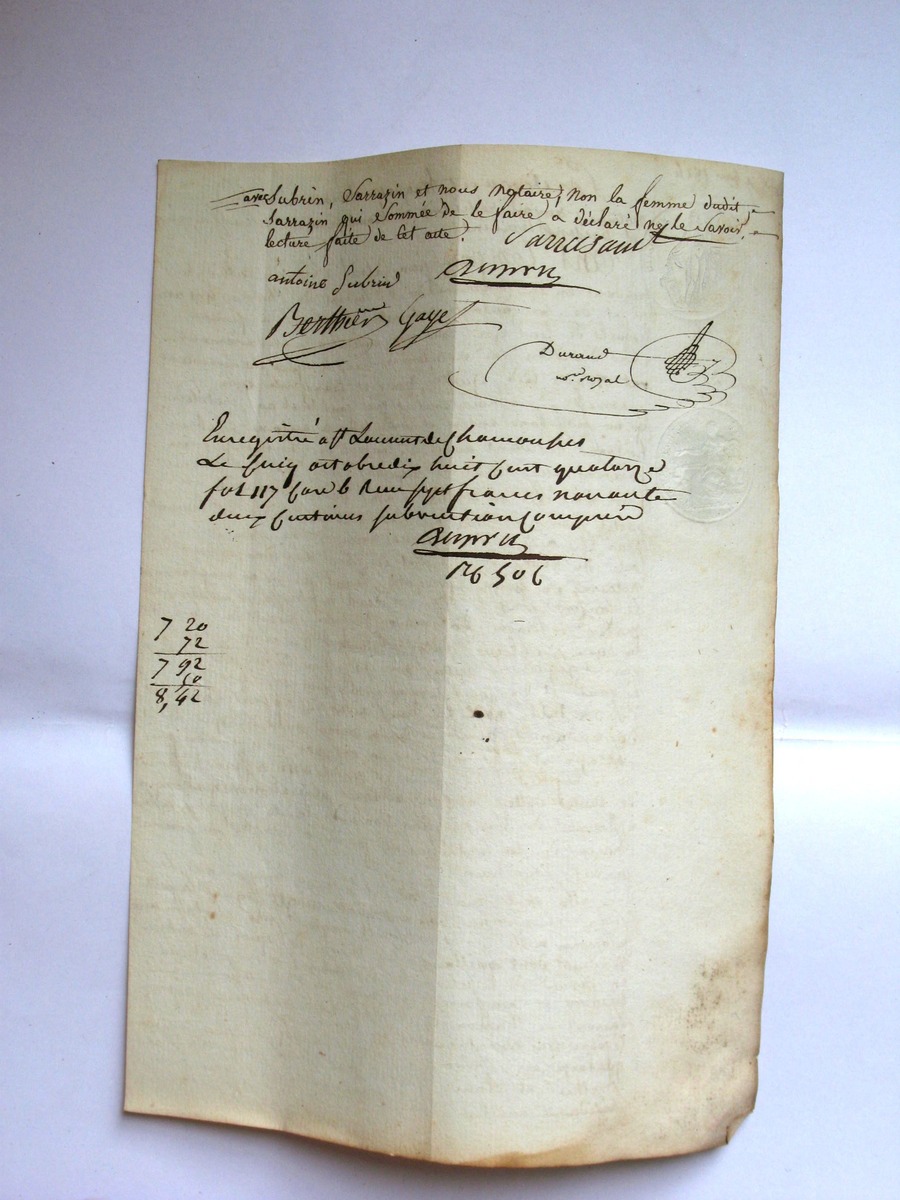 avec Subrin, Sarrazin et nous notaire, non la femme dudit
Sarrazin qui sommée de le faire a déclaré ne le savoir,
lecture faite de cet acte. Sarrasain
antoine Subrin
Berthier Gayet
Durand
nre royal
Enregistré a St Laurent de Chamousset
Le cinq octobre dix huit cent quatorze
fol 117 Case 6 Reçu sept francs novante
deux centimes subvention comprise
7 20
72
7 92
50
8,42